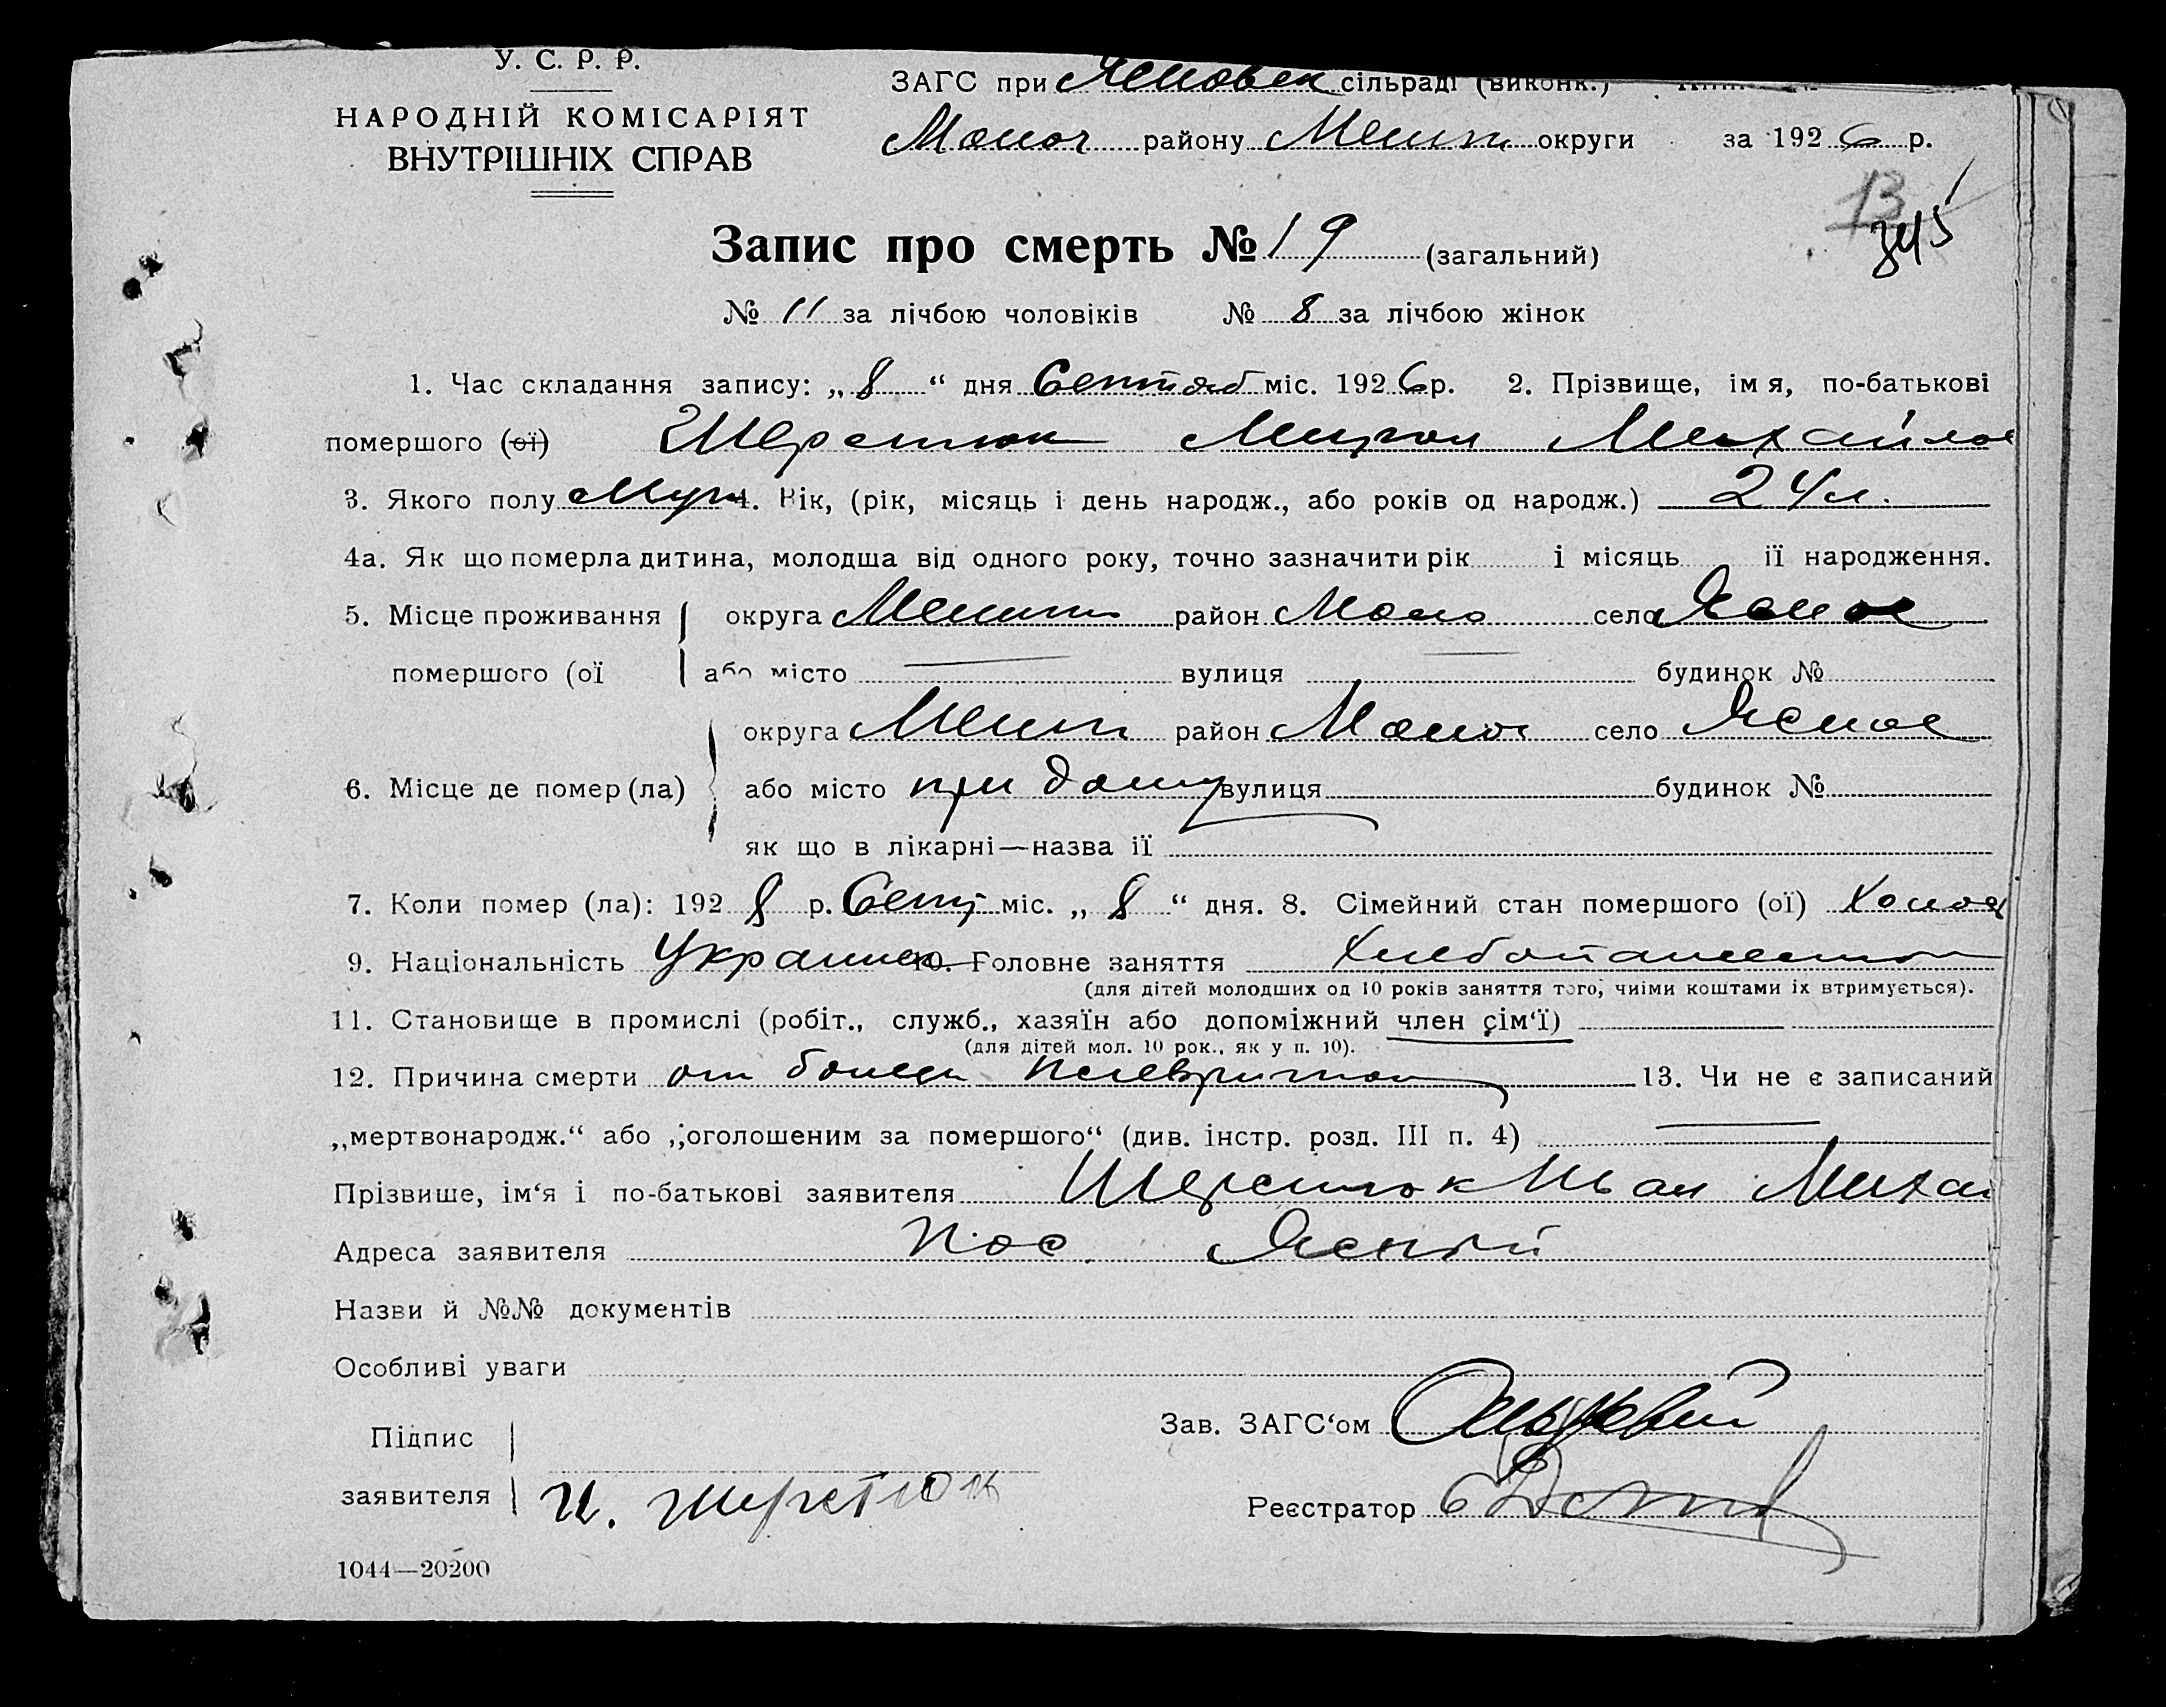 У. С. Р. Р.
НАРОДНІЙ КОМІСАРІЯТ
ВНУТРІШНІХ СПРАВ
ЗАГС при Ясновск сільраді (виконк.)
району Мелит округи за 1926 р.
13
345
Запис про смерть № 19 (загальний)
№ 11 за лічбою чоловіків № 8 за лічбою жінок
1. Час складання запису: „8“ дня Сентяб міс. 1926 р. 2. Прізвище, імя, по-батькові
помершого (ої) Шерстюк Мирон Михайлов
3. Якого полу Муж 4. Вік, (рік, місяць і день народж., або років од народж.) 24 л.
4а. Як що померла дитина, молодша від одного року, точно зазначити рік і місяць ії народження.
5. Місце проживання округа Мелит район село Ясное
помершого (ої або місто вулиця будинок №
округа Мелит район село Ясное
6. Місце де помер (ла) або місто при дому вулиця будинок №
як що в лікарні—назва ії
7. Коли помер (ла): 1928 р. Сент міс. „8“ дня. 8. Сімейний стан помершого (ої) Холос
9. Національність Украинец 10. Головне заняття
(для дітей молодших од 10 років заняття того, чиїми коштами іх втримується).
11. Становище в промислі (робіт., служб., хазяїн або допоміжний член сім‘ї)
(для дітей мол. 10 рок., як у п. 10).
12. Причина смерти от болезн плевритом 13. Чи не є записаний
„мертвонародж.“ або „оголошеним за помершого“ (див. інстр. розд. III п. 4)
Прізвише, ім‘я і по-батькові заявителя Шерстюк Иван Михай
Адреса заявителя пос Ясный
Назви й №№ документів
Особливі уваги
Зав. ЗАГС‘ом
Підпис
заявителя И. Шерстюк
Реєстратор
1044—20200